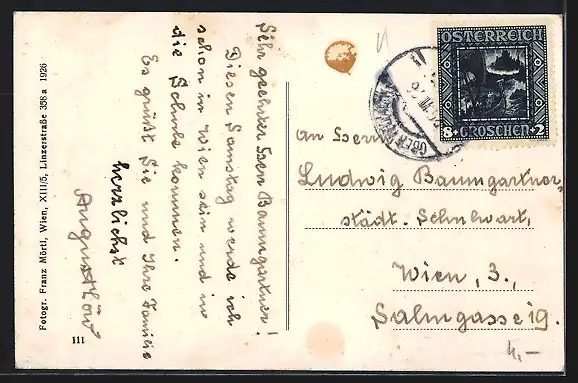 Sehr geehrter Herr Baumgartner!
Diesen Samstag werde ich
schon in Wien sein und in
die Schule kommen.
Es grüßt Sie und Ihre Familie
herzlichst
August Löw
Fotogr. Franz Mörtl, Wien, XIII/5, Linzerstraße 358 a 1926
111
ÖSTERREICH
8+GROSCHEN+2
An Herrn
Ludwig Baumgartner,
städt. Schulwart,
Wien, 3.,
Salmgasse 19.
4,-